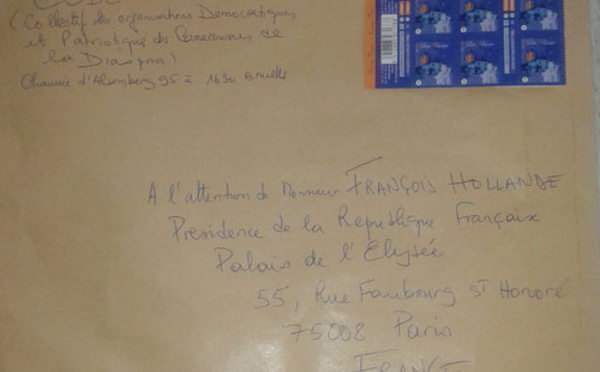 CODE
(Collectif des organisations Democratiques
et Patriotique des Camerounais de
la Diaspora)
Chaussée d'Alsemberg 95 = 1630 Bruxelles
A l'attention de Monsieur FRANÇOIS HOLLANDE
Presidence de la Republique Française
Palais de l'Elysée
55, Rue Faubourg ST Honoré
75008 Paris
FRANCE